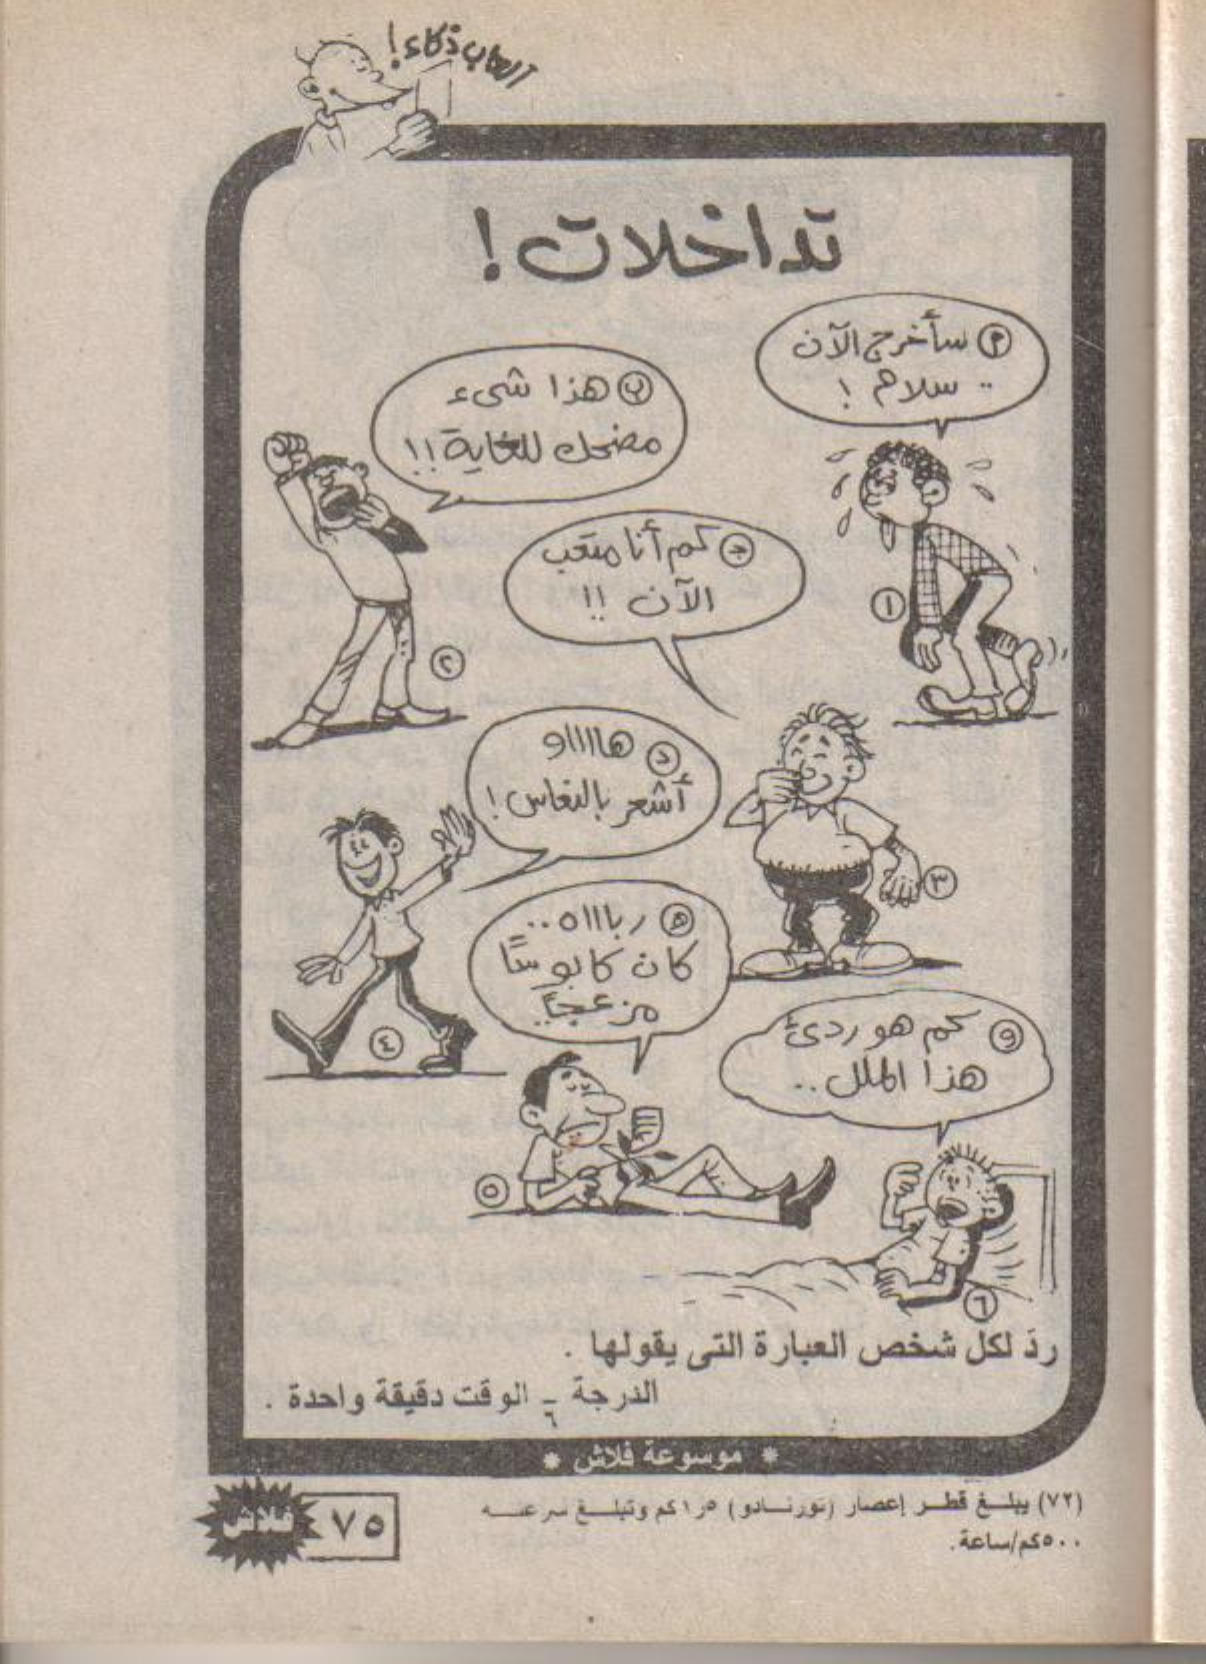 ألعاب ذكاء!
تداخلات!
(م) سأخرج الآن
.. سلام!
(ب) هذا شىء
مضحك للغاية!!
(جـ) كم أنا متعب
الآن !!
(د) هااااو
أشعر بالنعاس!
(هـ) ربااااه..
كان كابوسًا
مزعجًا..
(و) كم هو ردئ
هذا الملل..
١
٢
٣
٤
٥
٦
ردَ لكل شخص العبارة التى يقولها .
الدرجة ـ/٦ الوقت دقيقة واحدة .
* موسوعة فلاش *
(٧٢) يبلـغ قطـر إعصار (تورنـادو) ١٫٥كم وتبلـغ سرعتـه
٥٠٠كم/ساعة.
٧٥
فلاش